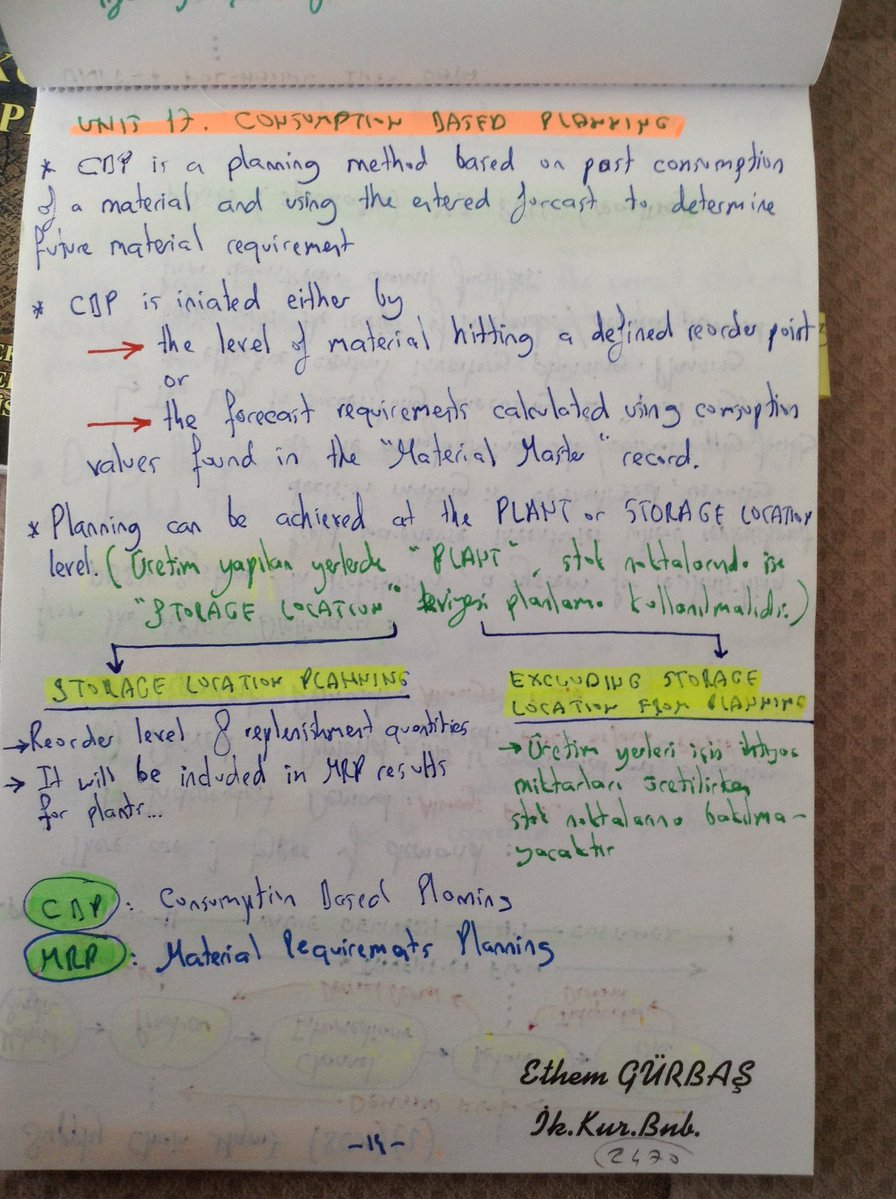 UNIT 17. CONSUMPTION BASED PLANNING
* CBP is a planning method based on past consumption
of a material and using the entered forcast to determine
future material requirement
* CBP is iniated either by
→ the level of material hitting a defined reorder point
or
→ the forecast requirements calculated using consuption
values found in the "Material Master" record.
* Planning can be achieved at the PLANT or STORAGE LOCATION
level. (Üretim yapılan yerlerde "PLANT", stok noktalarında ise
"STORAGE LOCATION" seviyesi planlama kullanılmalıdır.)
STORAGE LOCATION PLANNING
→ Reorder level & replenishment quantities
→ It will be included in MRP results
for plants...
EXCLUDING STORAGE
LOCATION FROM PLANNING
→ Üretim yerleri için ihtiyaç
miktarları üretilirken
stok noktalarına bakılma-
yacaktır
CBP : Consumption Based Planning
MRP : Material Requirements Planning
Ethem GÜRBAŞ
İk.Kur.Bnb.
-19-
2470